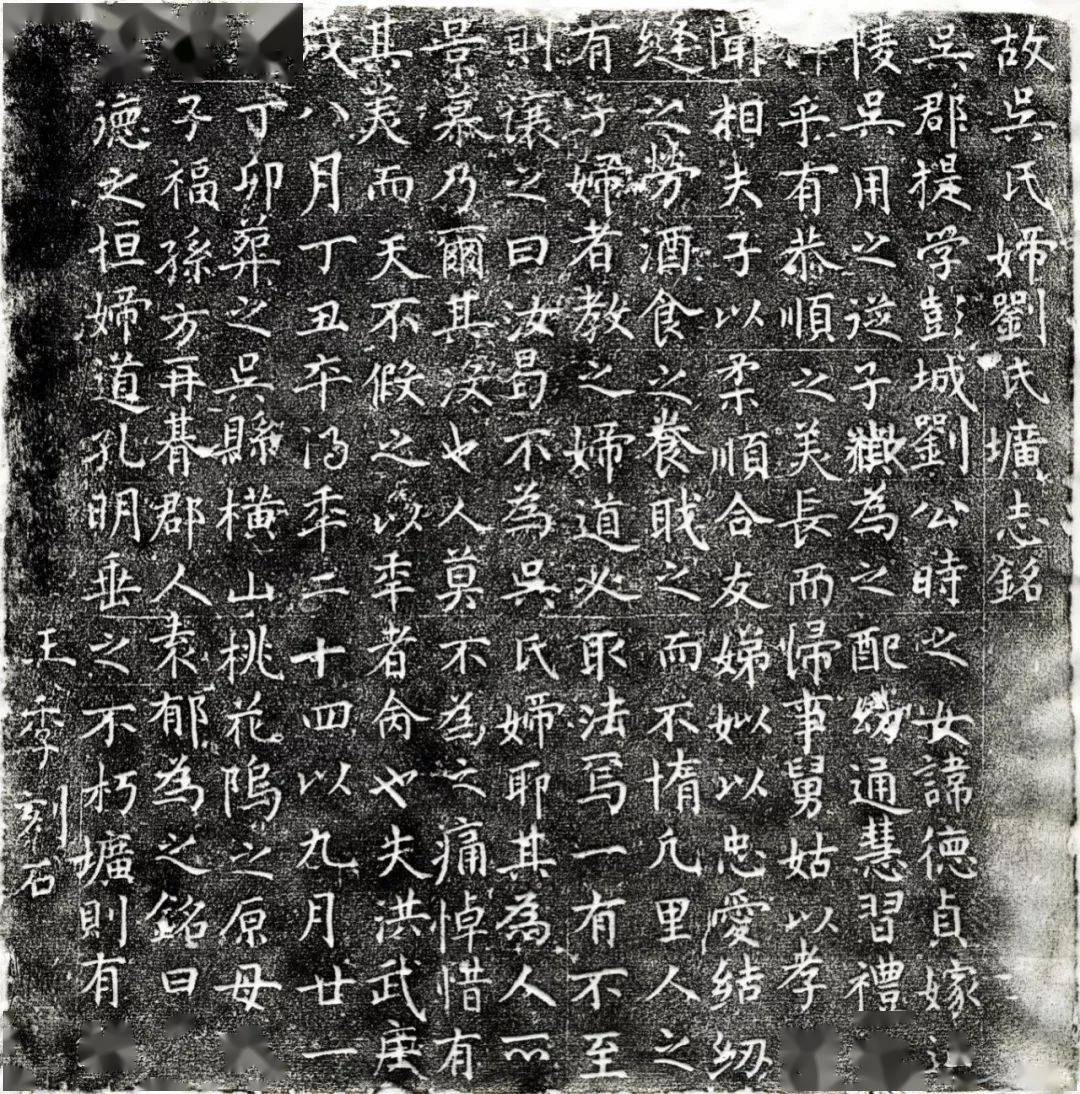 故吳氏婦劉氏壙志銘
吳郡提学彭城劉公時之女諱德貞嫁
陵吳用之從子為之配幼通慧習禮
乎有恭順之美長而歸事舅姑以孝
聞相夫子以柔順合友娣姒以忠愛結紉
縫之勞酒食之養職之而不惰凡里人之
有子婦者教之婦道必取法焉一有不至
則讓之曰汝曷不為吳氏婦耶其為人所
景慕乃爾其没也人莫不為之痛悼惜有
其美而天不假之以年者命也夫洪武庚
戌八月丁丑卒得年二十四以九月廿一
丁卯葬之吳縣橫山桃花隖之原母
子福孫方再朞郡人袁郁為之銘曰
德之恒婦道孔明垂之不朽壙則有
王季刻石